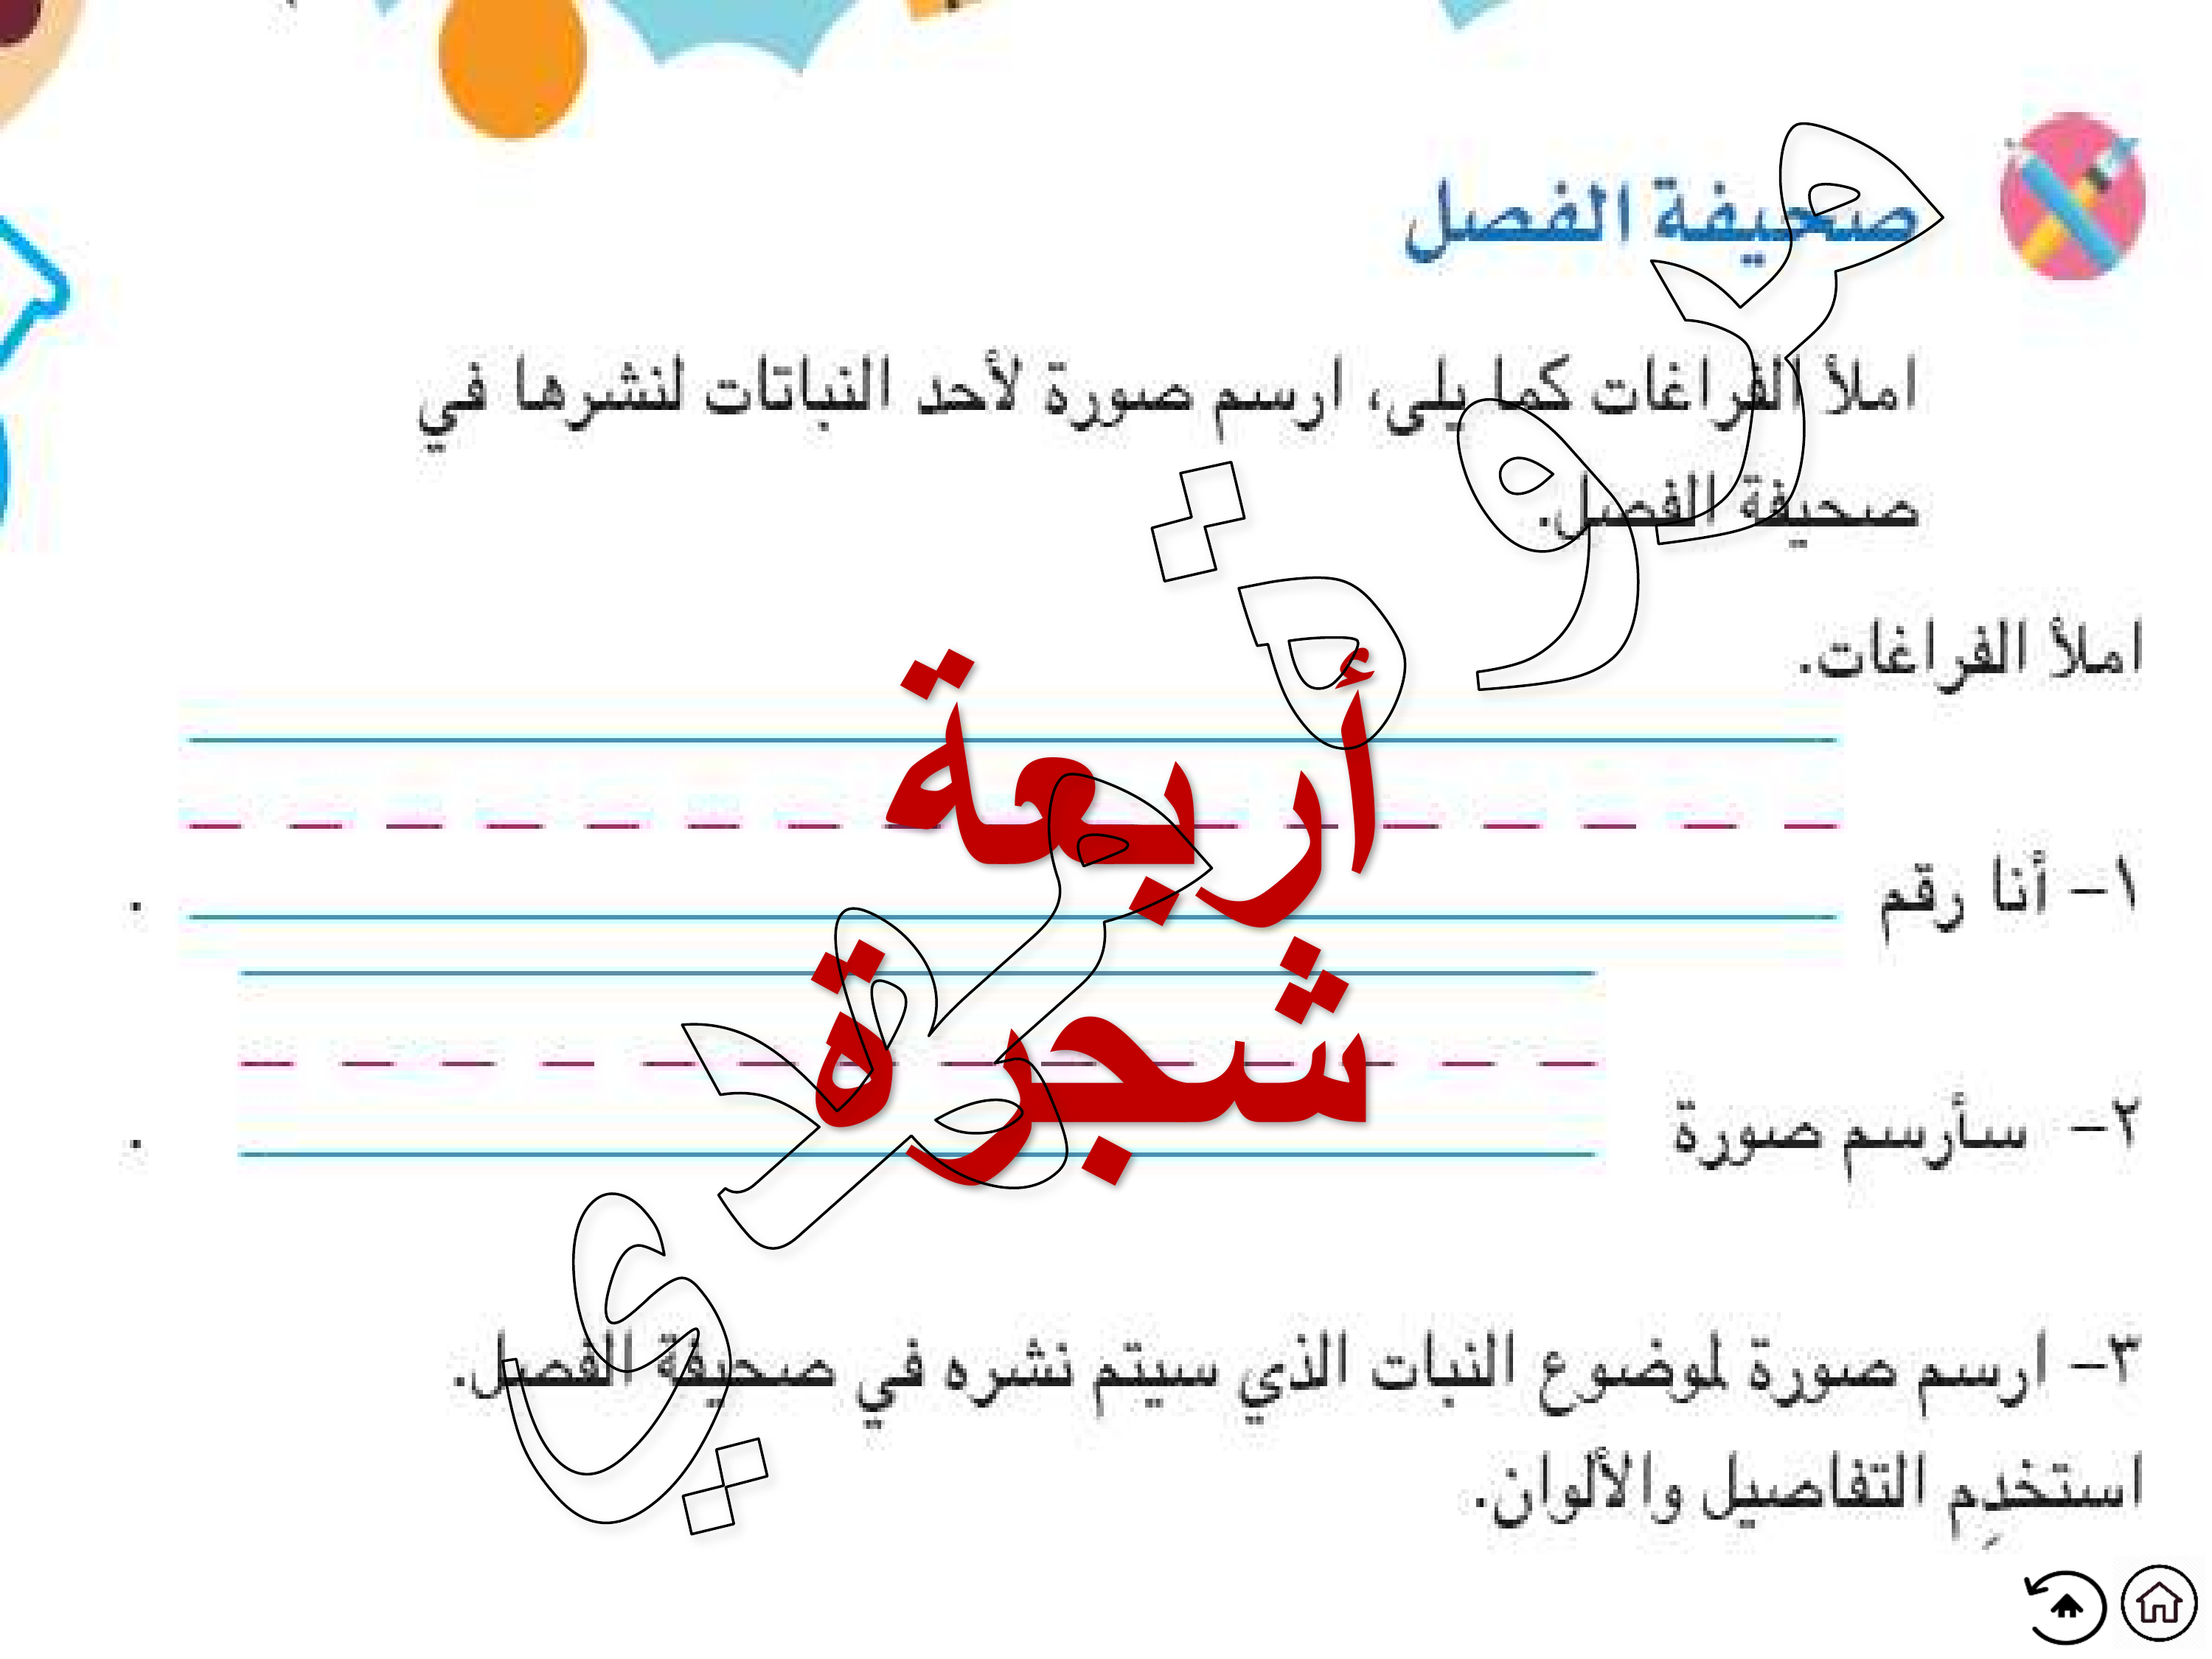 صحيفة الفصل
املأ الفراغات كما يلي، ارسم صورة لأحد النباتات لنشرها في
صحيفة الفصل.
املأ الفراغات.
١- أنا رقم أربعة .
٢- سأرسم صورة شجرة .
٣- ارسم صورة لموضوع النبات الذي سيتم نشره في صحيفة الفصل.
استخدِم التفاصيل والألوان.